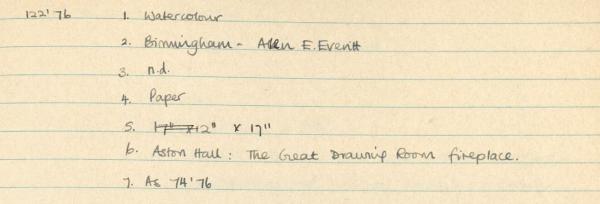 122'76 1. Watercolour
2. Birmingham - Allen E. Everitt
3. n.d.
4. Paper
5. 17" x 12" x 17"
6. Aston Hall: The Great Drawing Room fireplace.
7. As 74'76